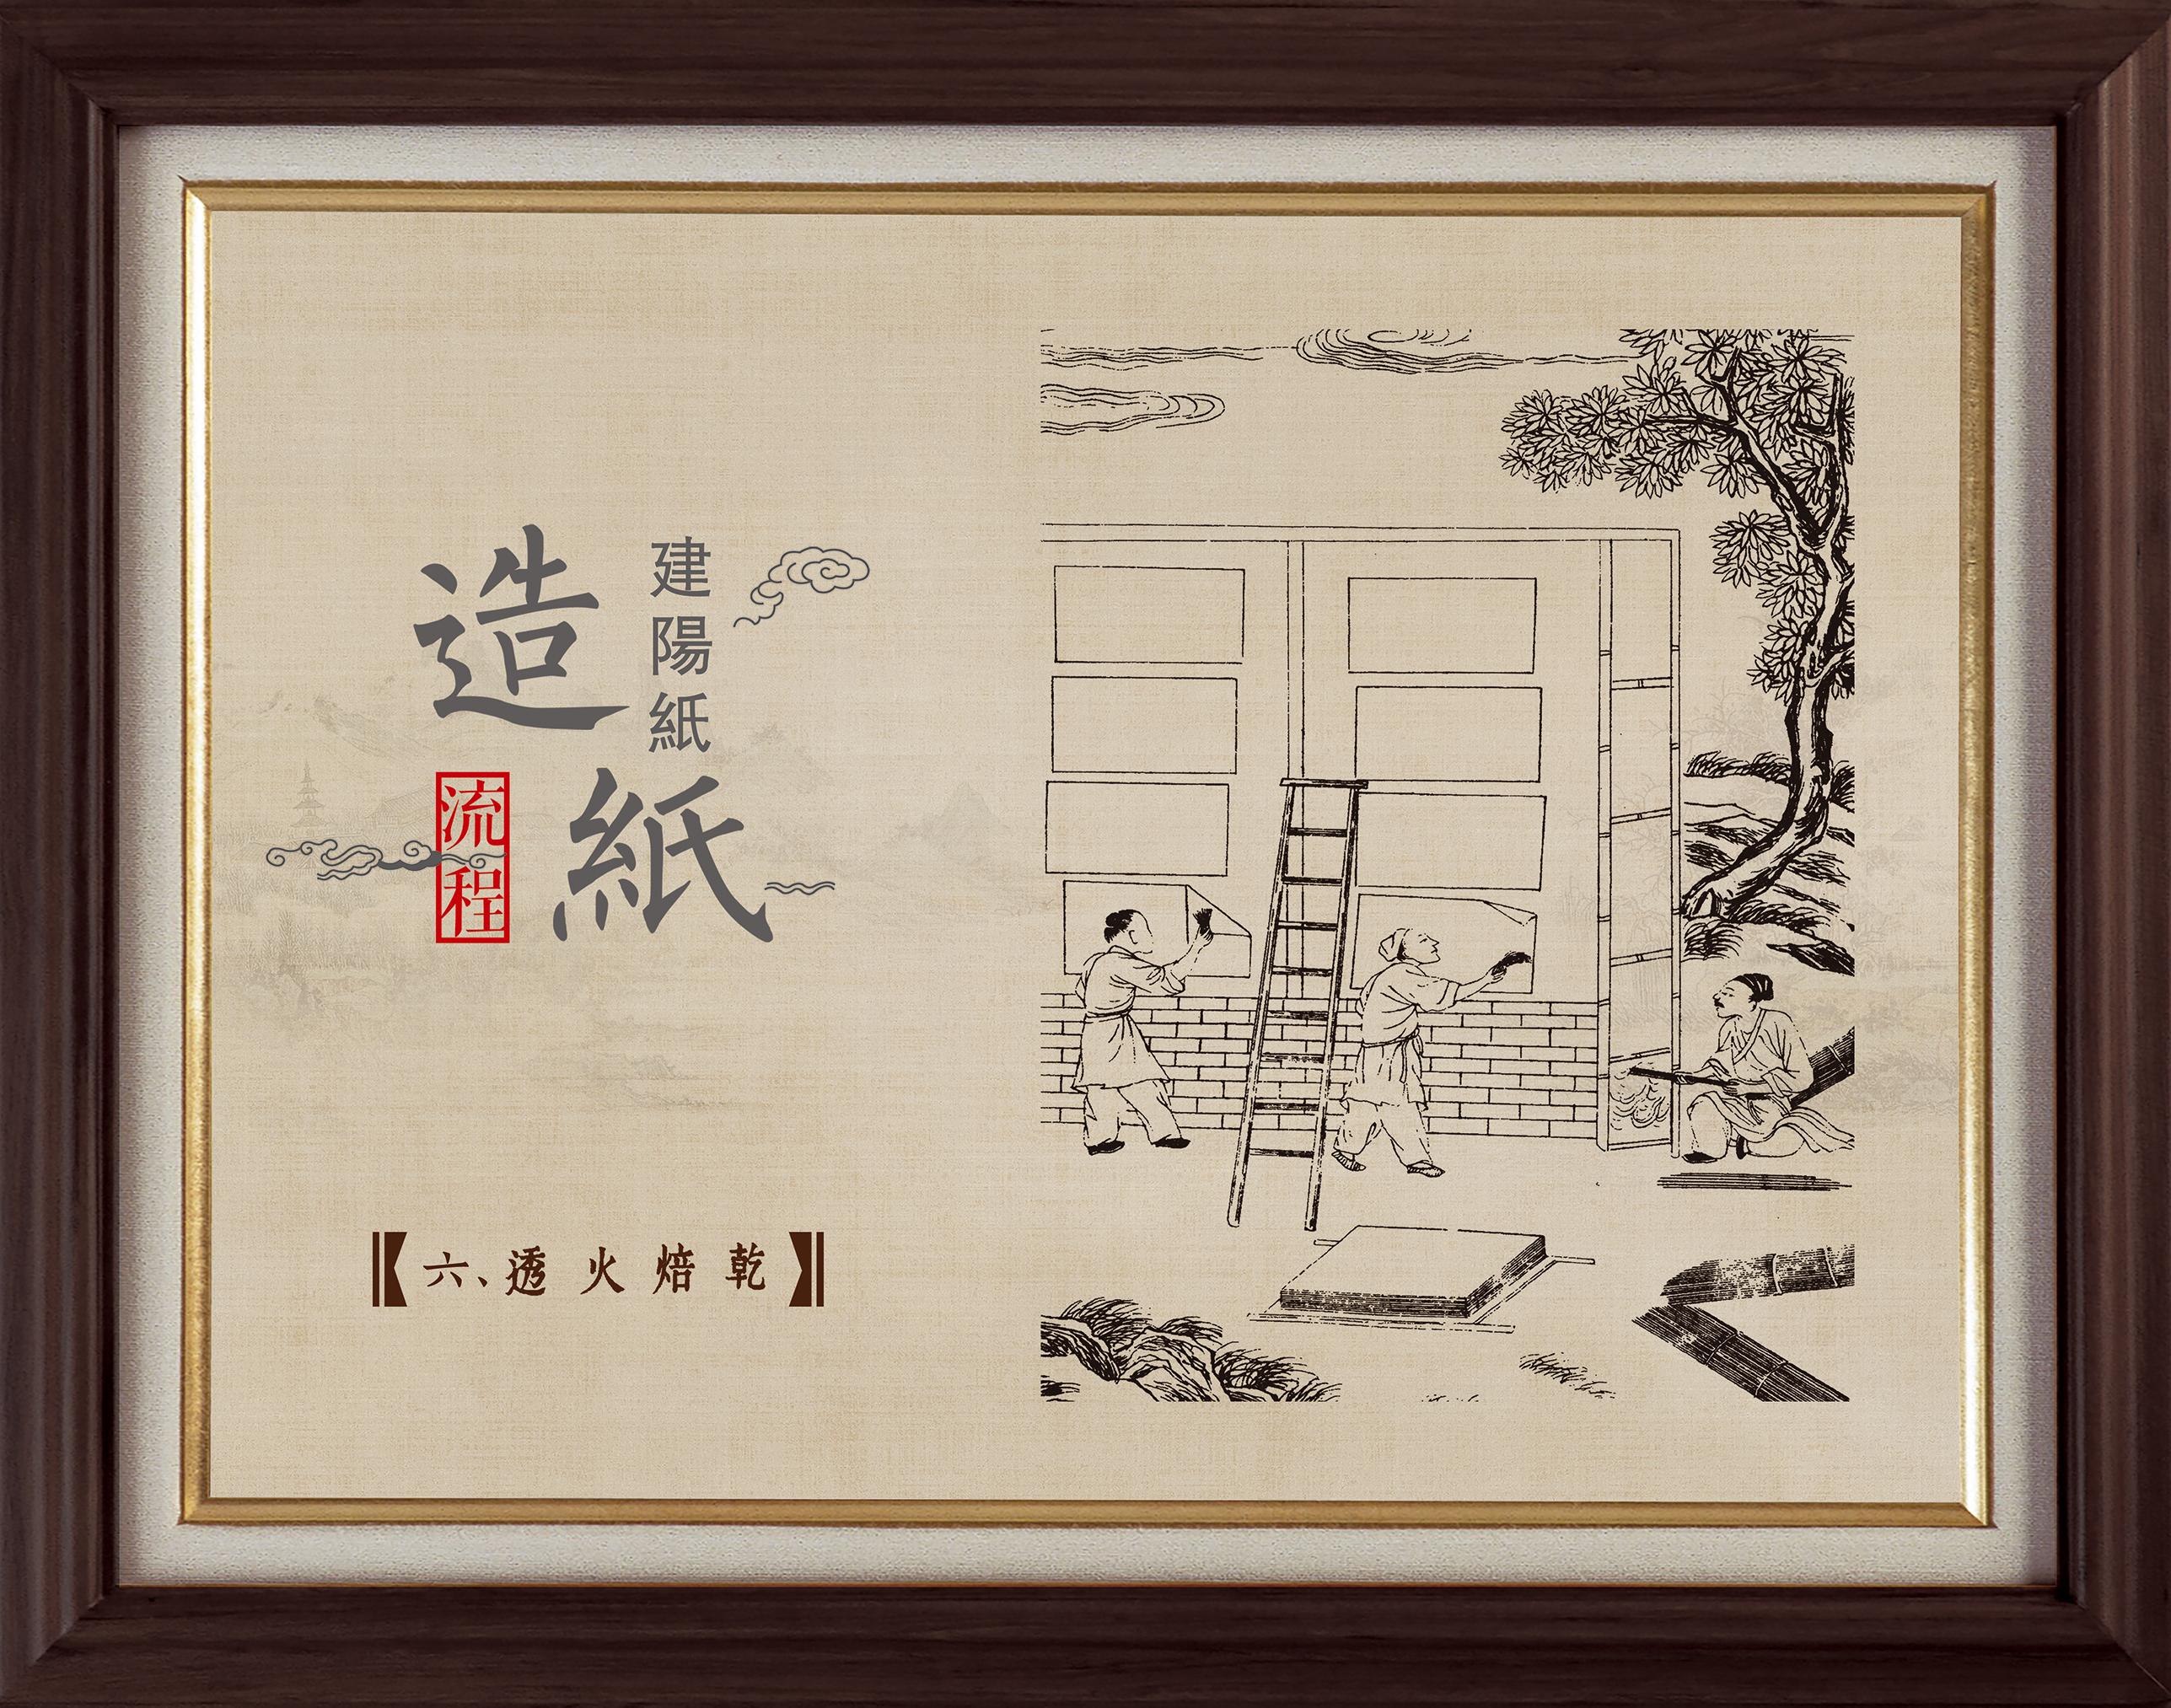 建陽紙
造紙
流程
六、透火焙乾